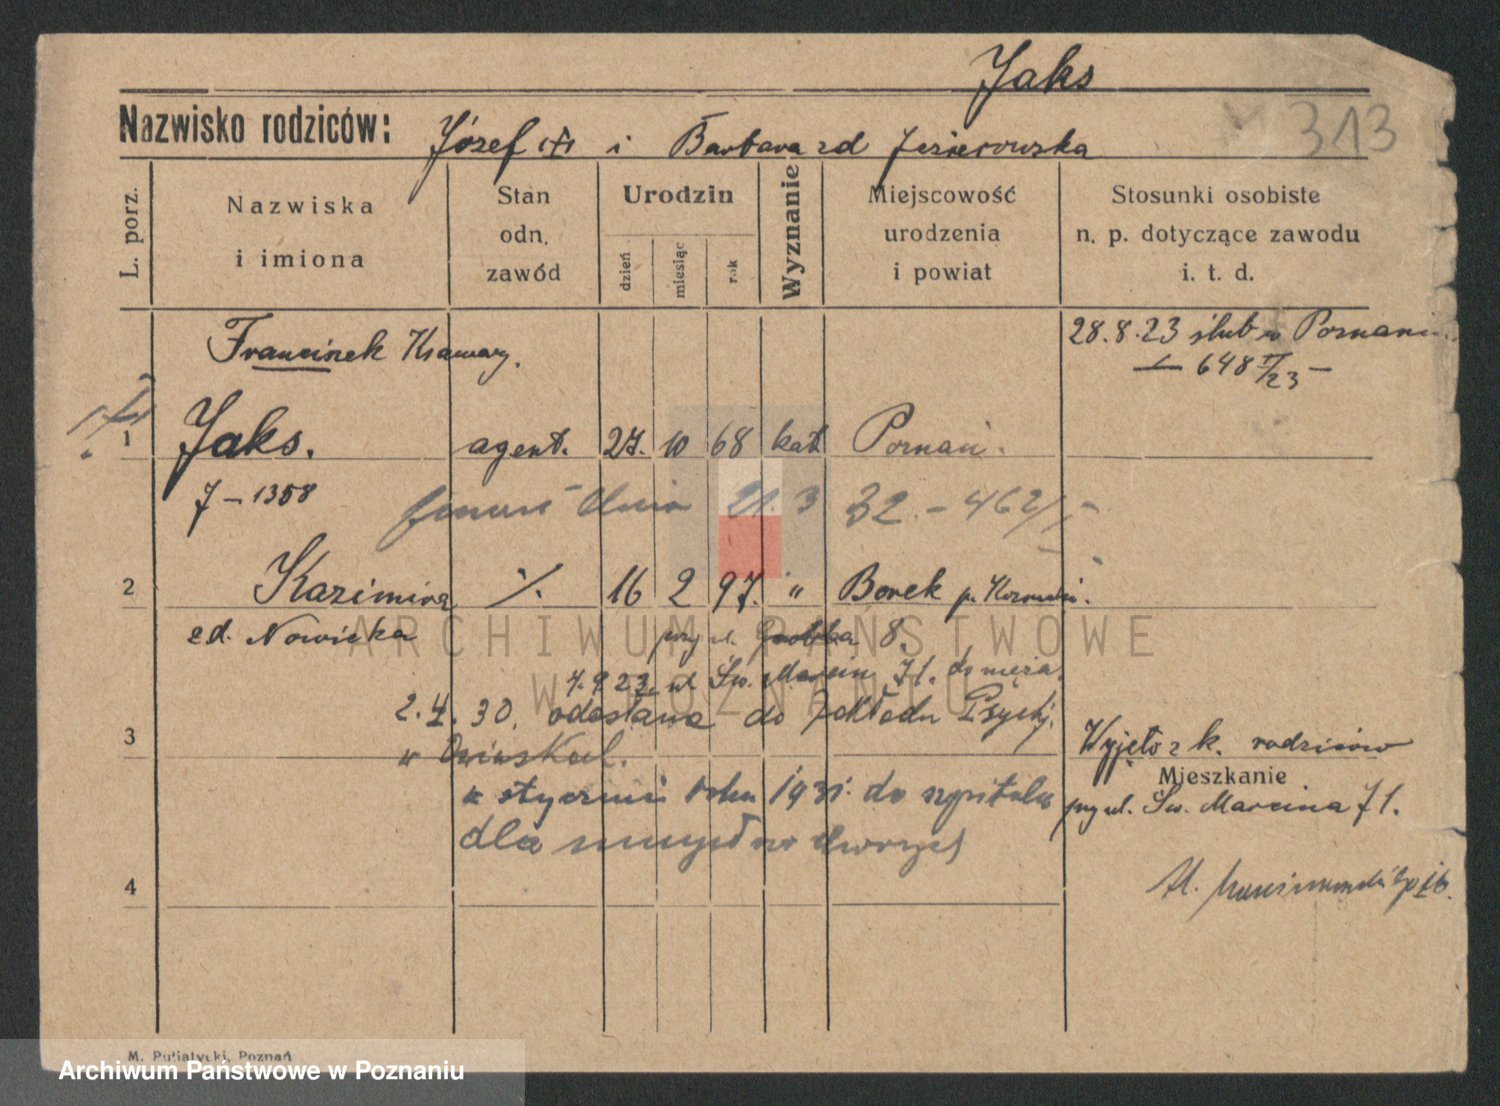 Jaks
Nazwisko rodziców: Józef i Barbara zd Jezierowska
313
L. porz.
Nazwiska i imiona
Stan odn. zawód
Urodzin
dzień
miesiąc
rok
Wyznanie
Miejscowość urodzenia i powiat
Stosunki osobiste n. p. dotyczące zawodu i. t. d.
Franciszek Ksawery.
28.8.23 ślub w Poznaniu
648 /23 –
1 Jaks. agent. 27. 10 68 kat Poznań.
7 – 1358
dnia 21. 3 32. – 462/
2 Kazimira ./. 16 2 97. " Borek p.
zd. Nowicka
przy ul. 8.
7.9.23 ul Św. Marcin 71. do męża.
2.4.30. odesłana do Zakładu Psychj.
3 w
Wyjęto z k. rodziców
Mieszkanie
w styczniu roku 1931. do szpitala
przy ul. Św. Marcina 71.
dla umysłowo chorych
4
M. Putiatycki, Poznań
ARCHIWUM PAŃSTWOWE
W POZNANIU
Archiwum Państwowe w Poznaniu